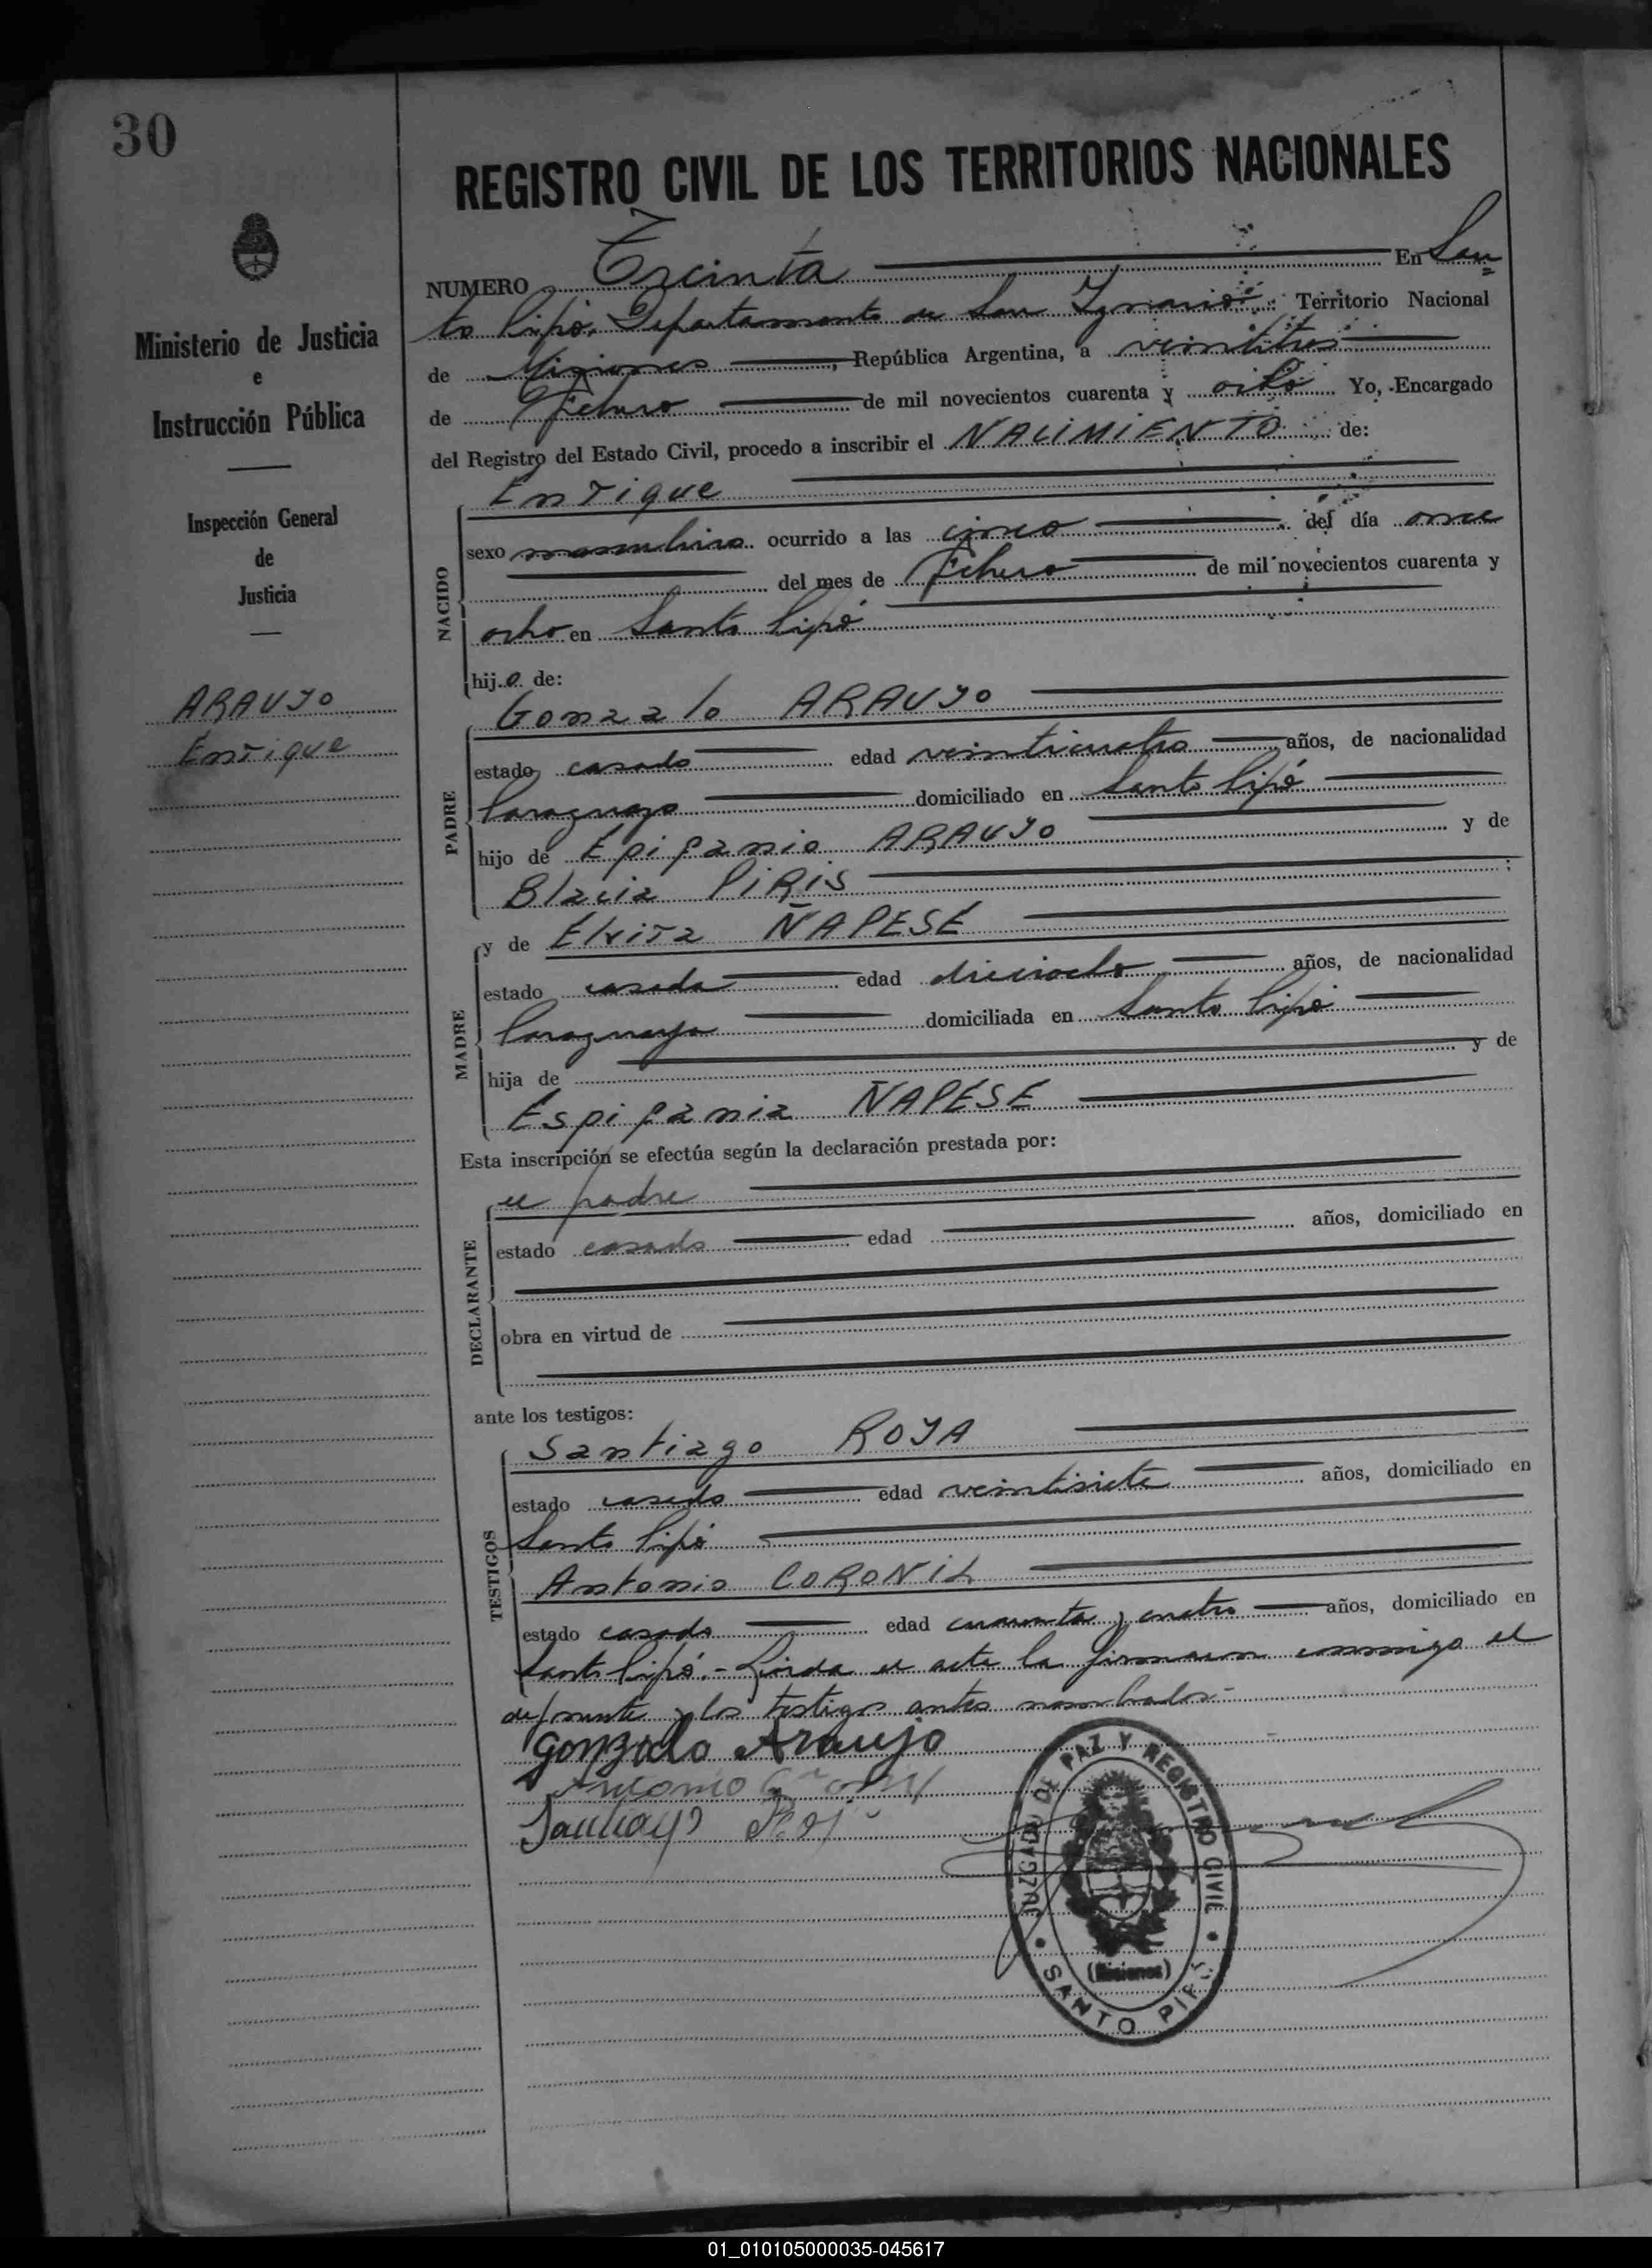 30
Ministerio de Justicia
e
Instrucción Pública
Inspección General
de
Justicia
ARAUJO
Enrique
REGISTRO CIVIL DE LOS TERRITORIOS NACIONALES
NUMERO Treinta En San=
to Pipó, Departamento de San Ignacio Territorio Nacional
de Misiones, República Argentina, a veintitres
de Febrero de mil novecientos cuarenta y ocho Yo, Encargado
del Registro del Estado Civil, procedo a inscribir el NACIMIENTO de:
NACIDO
Enrique
sexo masculino ocurrido a las cinco del día once
del mes de Febrero de mil novecientos cuarenta y
ocho en Santo Pipó
hijo de:
PADRE
Gonzalo ARAUJO
estado casado edad veinticuatro años, de nacionalidad
Paraguayo domiciliado en Santo Pipó
hijo de Epifanio ARAUJO y de
Blacia PIRIS ;
MADRE
y de Elvira ÑAPESÉ
estado casada edad dieciocho años, de nacionalidad
Paraguaya domiciliada en Santo Pipó
hija de y de
Espifania ÑAPESE
Esta inscripción se efectúa según la declaración prestada por:
DECLARANTE
el padre
estado casado edad años, domiciliado en
obra en virtud de
ante los testigos:
TESTIGOS
Santiago ROJA
estado casado edad veintisiete años, domiciliado en
Santo Pipó
Antonio CORONIL
estado casado edad cuarenta y cuatro años, domiciliado en
Santo Pipó.- Leida el acta la firmaron conmigo el
deponente y los testigos antes nombrados-
Gonzalo Araujo
Antonio
Santiago Roja
JUZGADO DE PAZ Y REGISTRO CIVIL
(Misiones)
SANTO PIPÓ
01_010105000035-045617